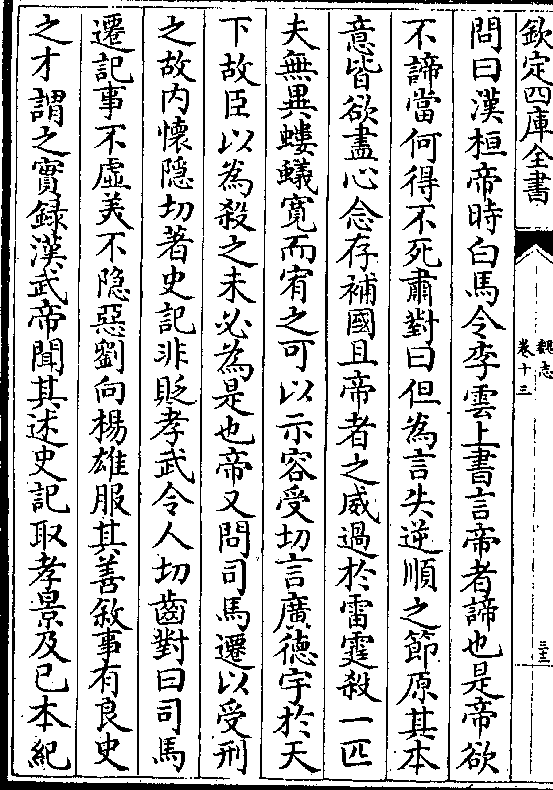 欽定四庫全書
魏志
卷十三
三十三
問曰漢桓帝時白馬令李雲上書言帝者諦也是帝欲
不諦當何得不死肅對曰但為言失逆順之節原其本
意皆欲盡心念存補國且帝者之威過於雷霆殺一匹
夫無異螻蟻寛而宥之可以示容受切言廣德宇於天
下故臣以為殺之未必為是也帝又問司馬遷以受刑
之故内懷隠切著史記非貶孝武令人切齒對曰司馬
遷記事不虛美不隠惡劉向楊雄服其善敘事有良史
之才謂之實録漢武帝聞其述史記取孝景及已本紀